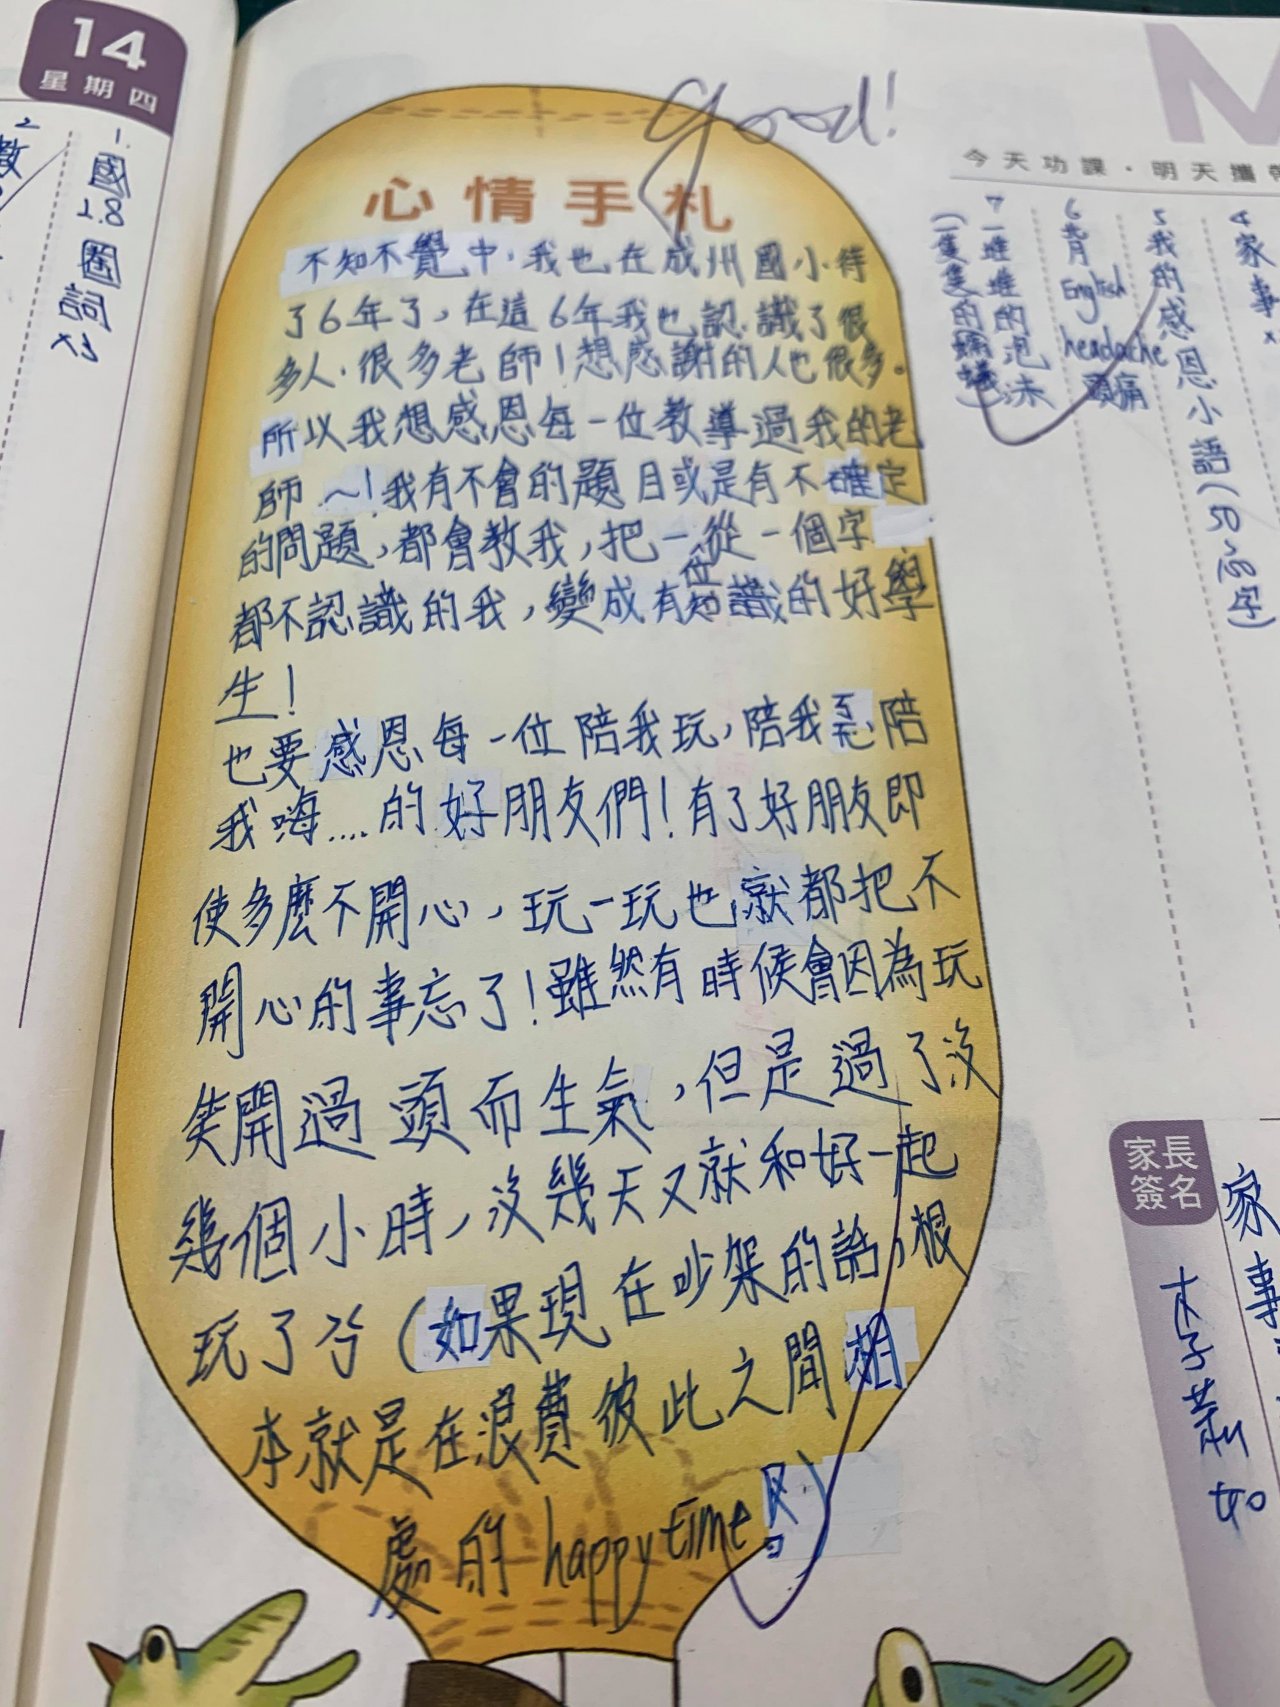 14
星期四
1. 國
2.8
圈詞
x2
2
教
good!
心情手札
不知不覺中,我也在成州國小待
了6年了,在這6年我也認識了很
多人,很多老師!想感謝的人也很多。
所以我想感恩每一位教導過我的老
師~!我有不會的題目或是有不確定
的問題,都會教我,把一從一個字
都不認識的我,變成有位知識的好學
生!
也要感恩每一位陪我玩,陪我丟陪
我嗨....的好朋友們!有了好朋友即
使多麼不開心,玩一玩也就都把不
開心的事忘了!雖然有時候會因為玩
笑開過頭而生氣,但是過了沒
幾個小時,沒幾天又就和好一起
玩了兮(如果現在吵架的話,根
本就是在浪費彼此之間相
處的happytime!)
今天功課·明天攜
4 家事x
5 我的感恩小語(50~ 字)
6 背English headache 頭痛
7 一堆堆的泡沫
(一隻隻的螞蟻)
家長
簽名
家事